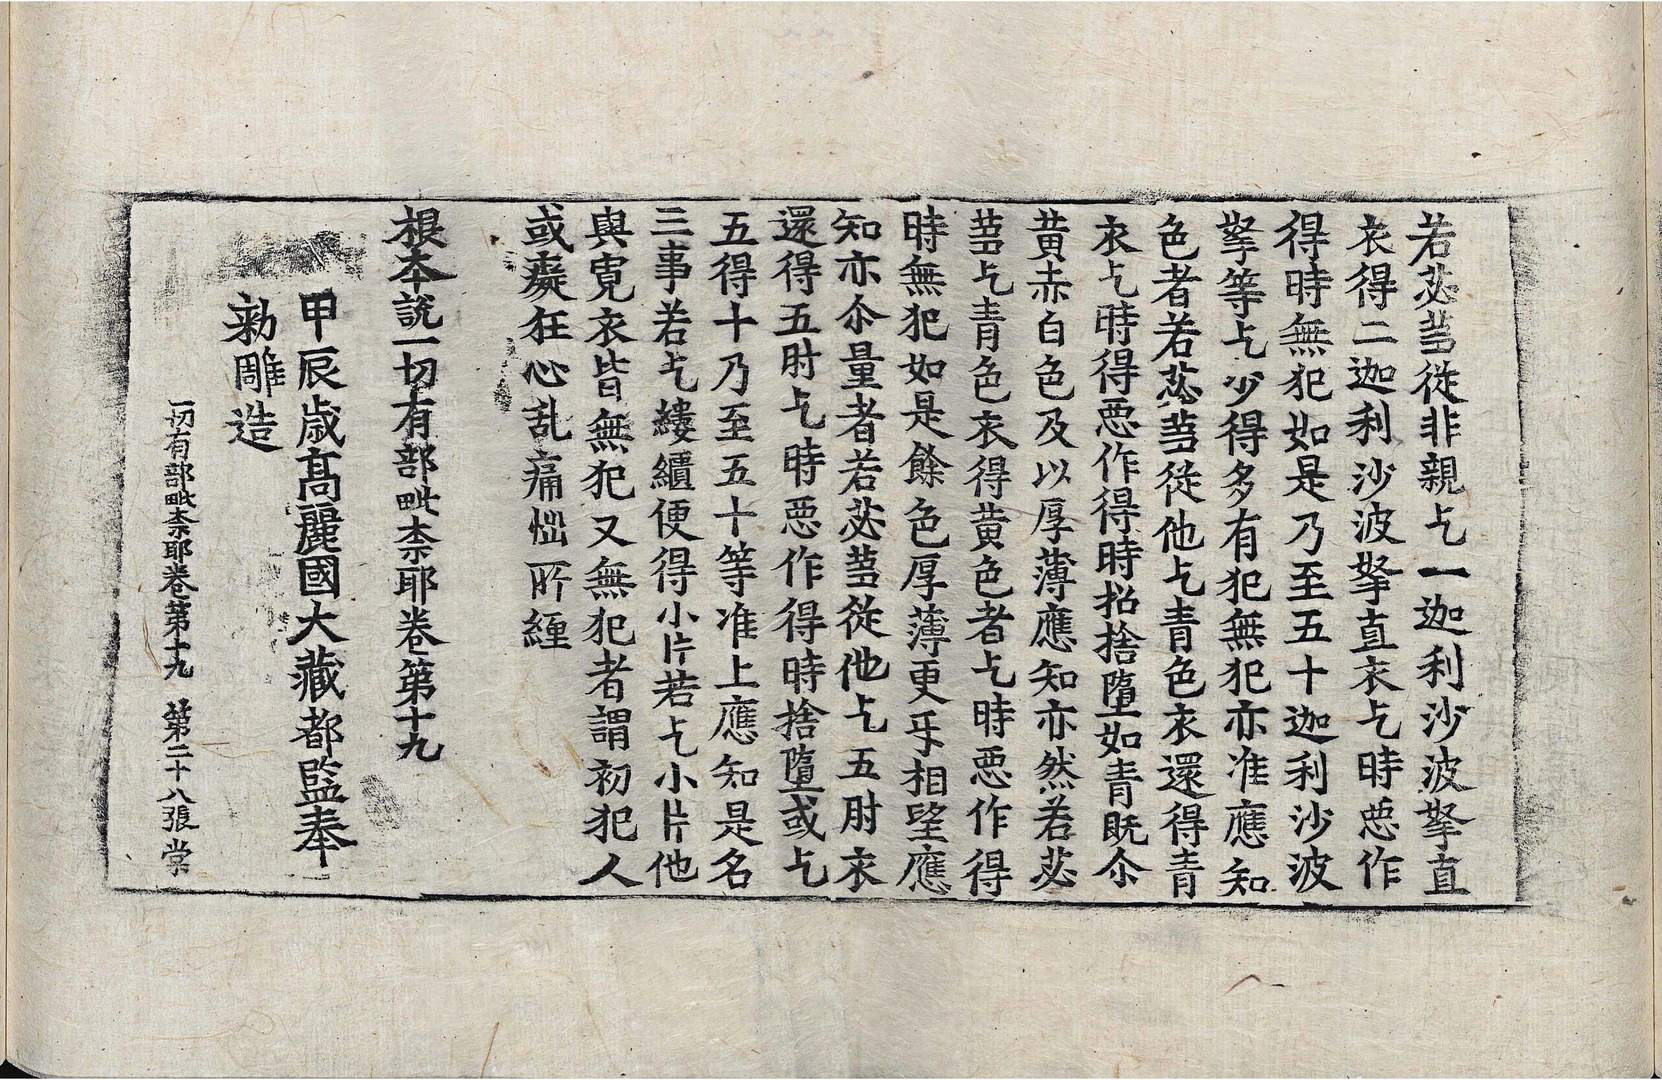 若苾蒭從非親乞一迦利沙波拏直
衣得二迦利沙波拏直衣乞時惡作
得時無犯如是乃至五十迦利沙波
拏等乞少得多有犯無犯亦准應知
色者若苾蒭從他乞青色衣還得青
衣乞時得惡作得時招捨墮如青既尒
黄赤白色及以厚薄應知亦然若苾
蒭乞青色衣得黄色者乞時惡作得
時無犯如是餘色厚薄更㸦相望應
知亦尒量者若苾蒭從他乞五肘衣
還得五肘乞時惡作得時捨墮或乞
五得十乃至五十等准上應知是名
三事若乞縷繢便得小片若乞小片他
與寬衣皆無犯又無犯者謂初犯人
或癡狂心乱痛惱所纒
根本說一切有部毗柰耶卷第十九
甲辰歳髙麗國大藏都監奉
勑雕造
一切有部毗柰耶卷第十九 第二十八張 棠